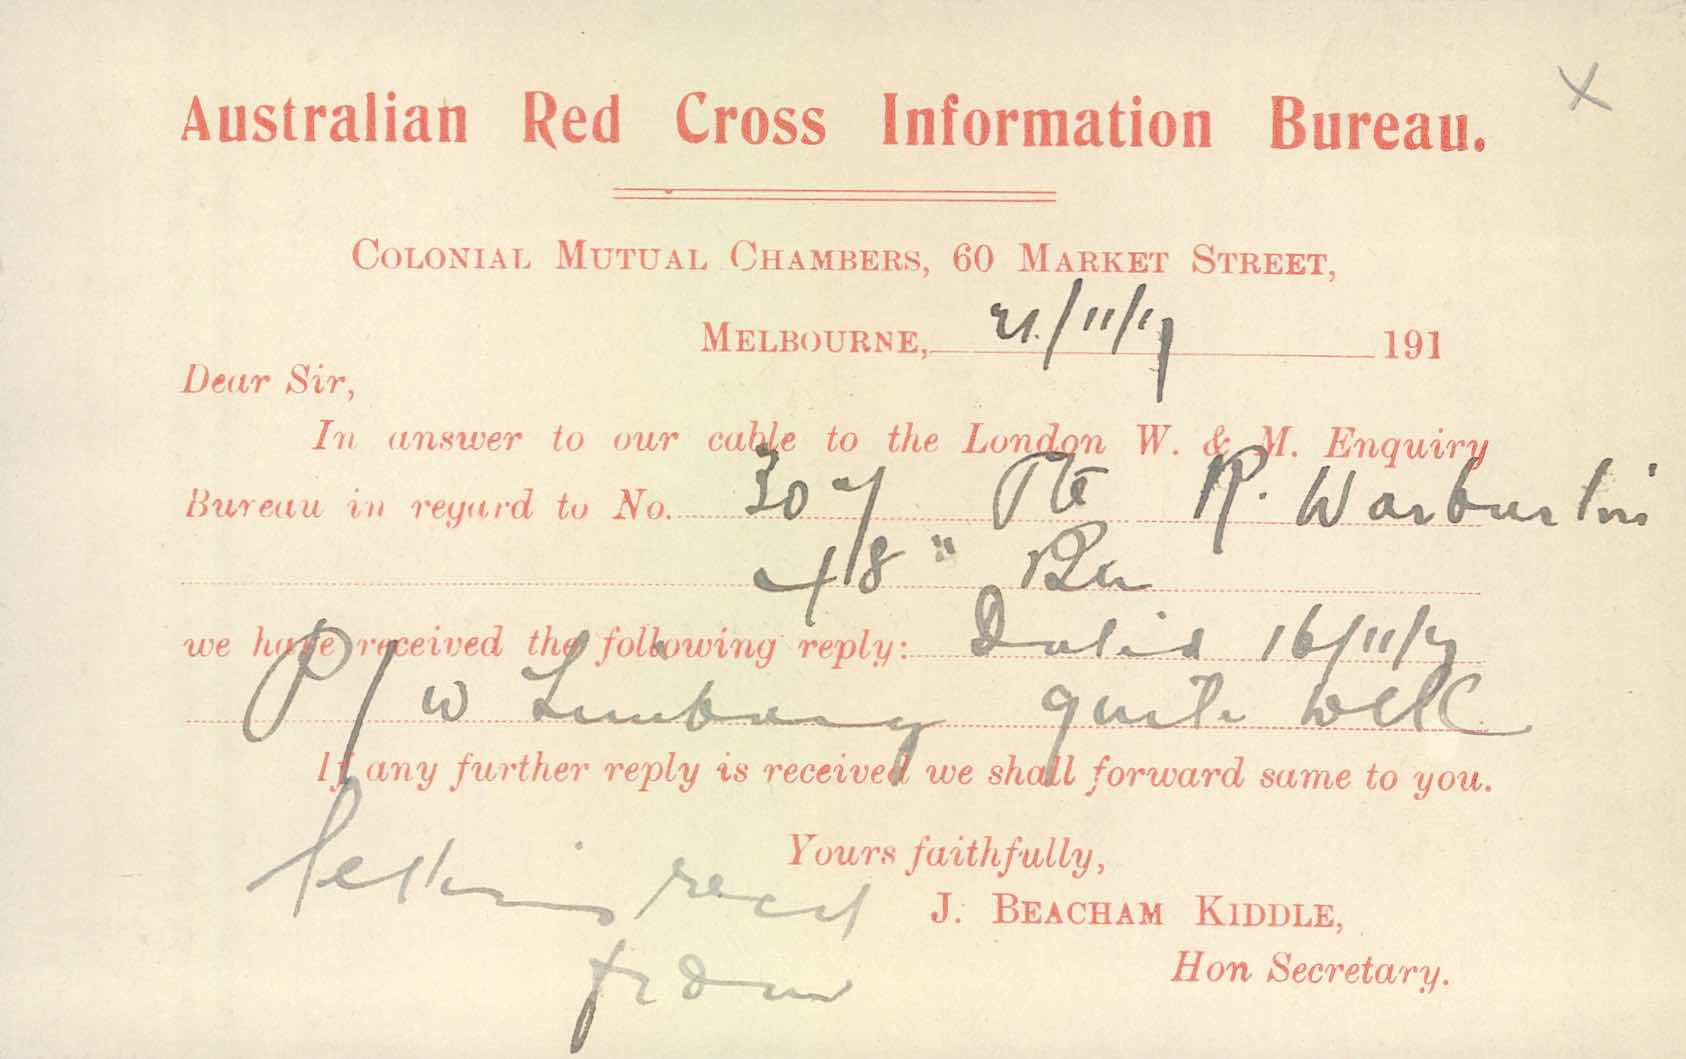 X
Australian Red Cross Information Bureau.
COLONIAL MUTUAL CHAMBERS, 60 MARKET STREET,
MELBOURNE, 21/11/17 191
Dear Sir,
In answer to our cable to the London W. & M. Enquiry
Bureau in regard to No. 307 Pte R. Warburton
48" Bn
we have received the following reply: Dated 16/11/17
P/W Limburg quite well
If any further reply is received we shall forward same to you.
Yours faithfully,
J. BEACHAM KIDDLE,
Hon Secretary.
recd
from